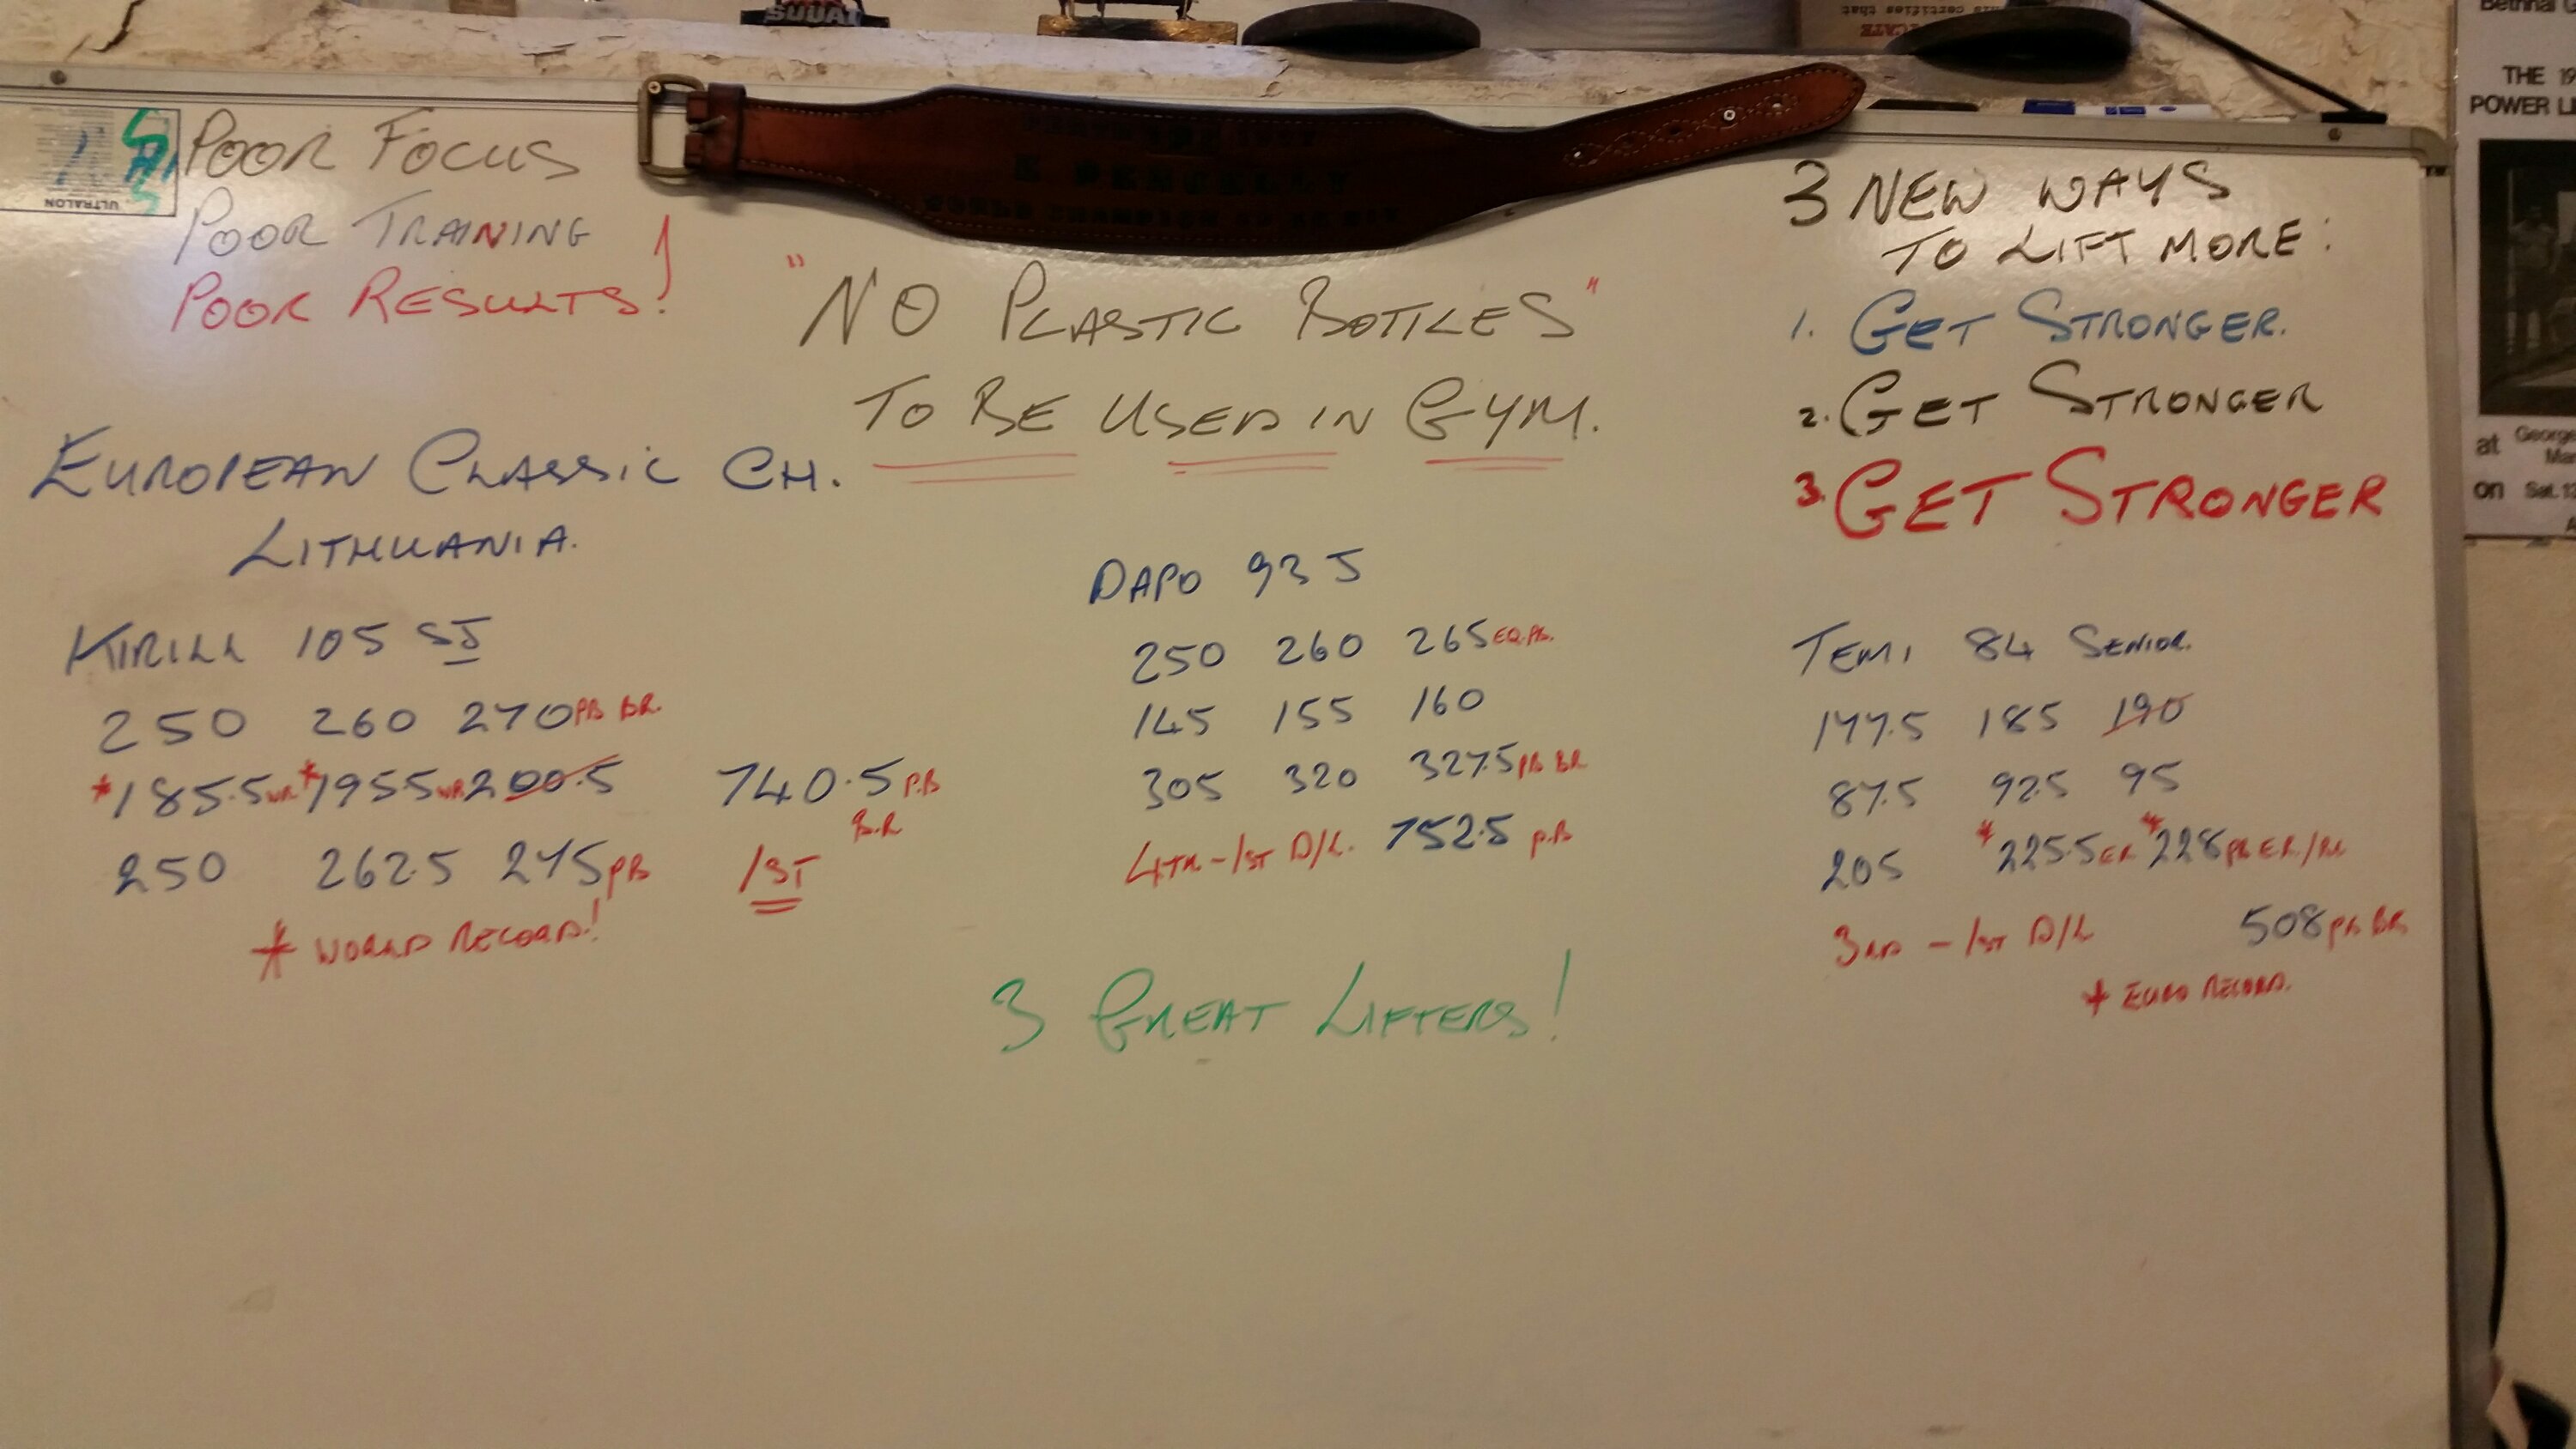 POOR FOCUS
POOR TRAINING
POOR RESULTS!
"NO PLASTIC BOTTLES"
TO BE USED IN GYM.
3 NEW WAYS
TO LIFT MORE:
1. GET STRONGER.
2. GET STRONGER
3. GET STRONGER
EUROPEAN CLASSIC CH.
LITHUANIA.
KIRILL 105 SJ
250 260 270 PB BR.
*185.5 WR *195.5 WR 200.5
740.5 P.B
B.R
250 262.5 275 PB
1ST
* WORLD RECORD!
DAPO 93 J
250 260 265 EQ.PB.
145 155 160
305 320 327.5 PB BR
4TH - 1ST D/L. 752.5 P.B
TEMI 84 SENIOR.
177.5 185 190
87.5 92.5 95
205 *225.5 ER *228 PB ER/BR
3RD - 1ST D/L 508 PB BR
* EURO RECORD.
3 GREAT LIFTERS!
ULTRALON
SQUAT
his certifies that
Bethnal G
THE 19
POWER LI
at George
Man
on Sat. 12